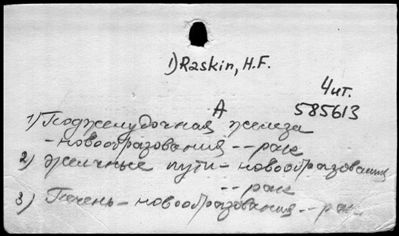 1) Raskin, H.F.
4 ит.
A 585613
1) Поджелудочная железа
- новообразования -- рак
2) Желчные пути - новообразования
-- рак
3) Печень - новообразования -- рак